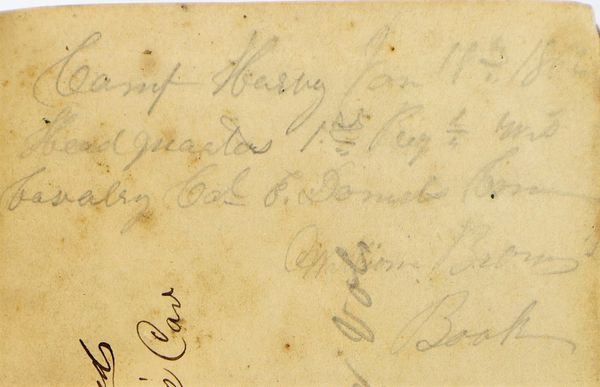 Camp Harvey Jan 11th 186
Head quarters 1st Reg't Wis
Cavalry Col E. Daniels Com
Brown's
Book
Vol
Cav